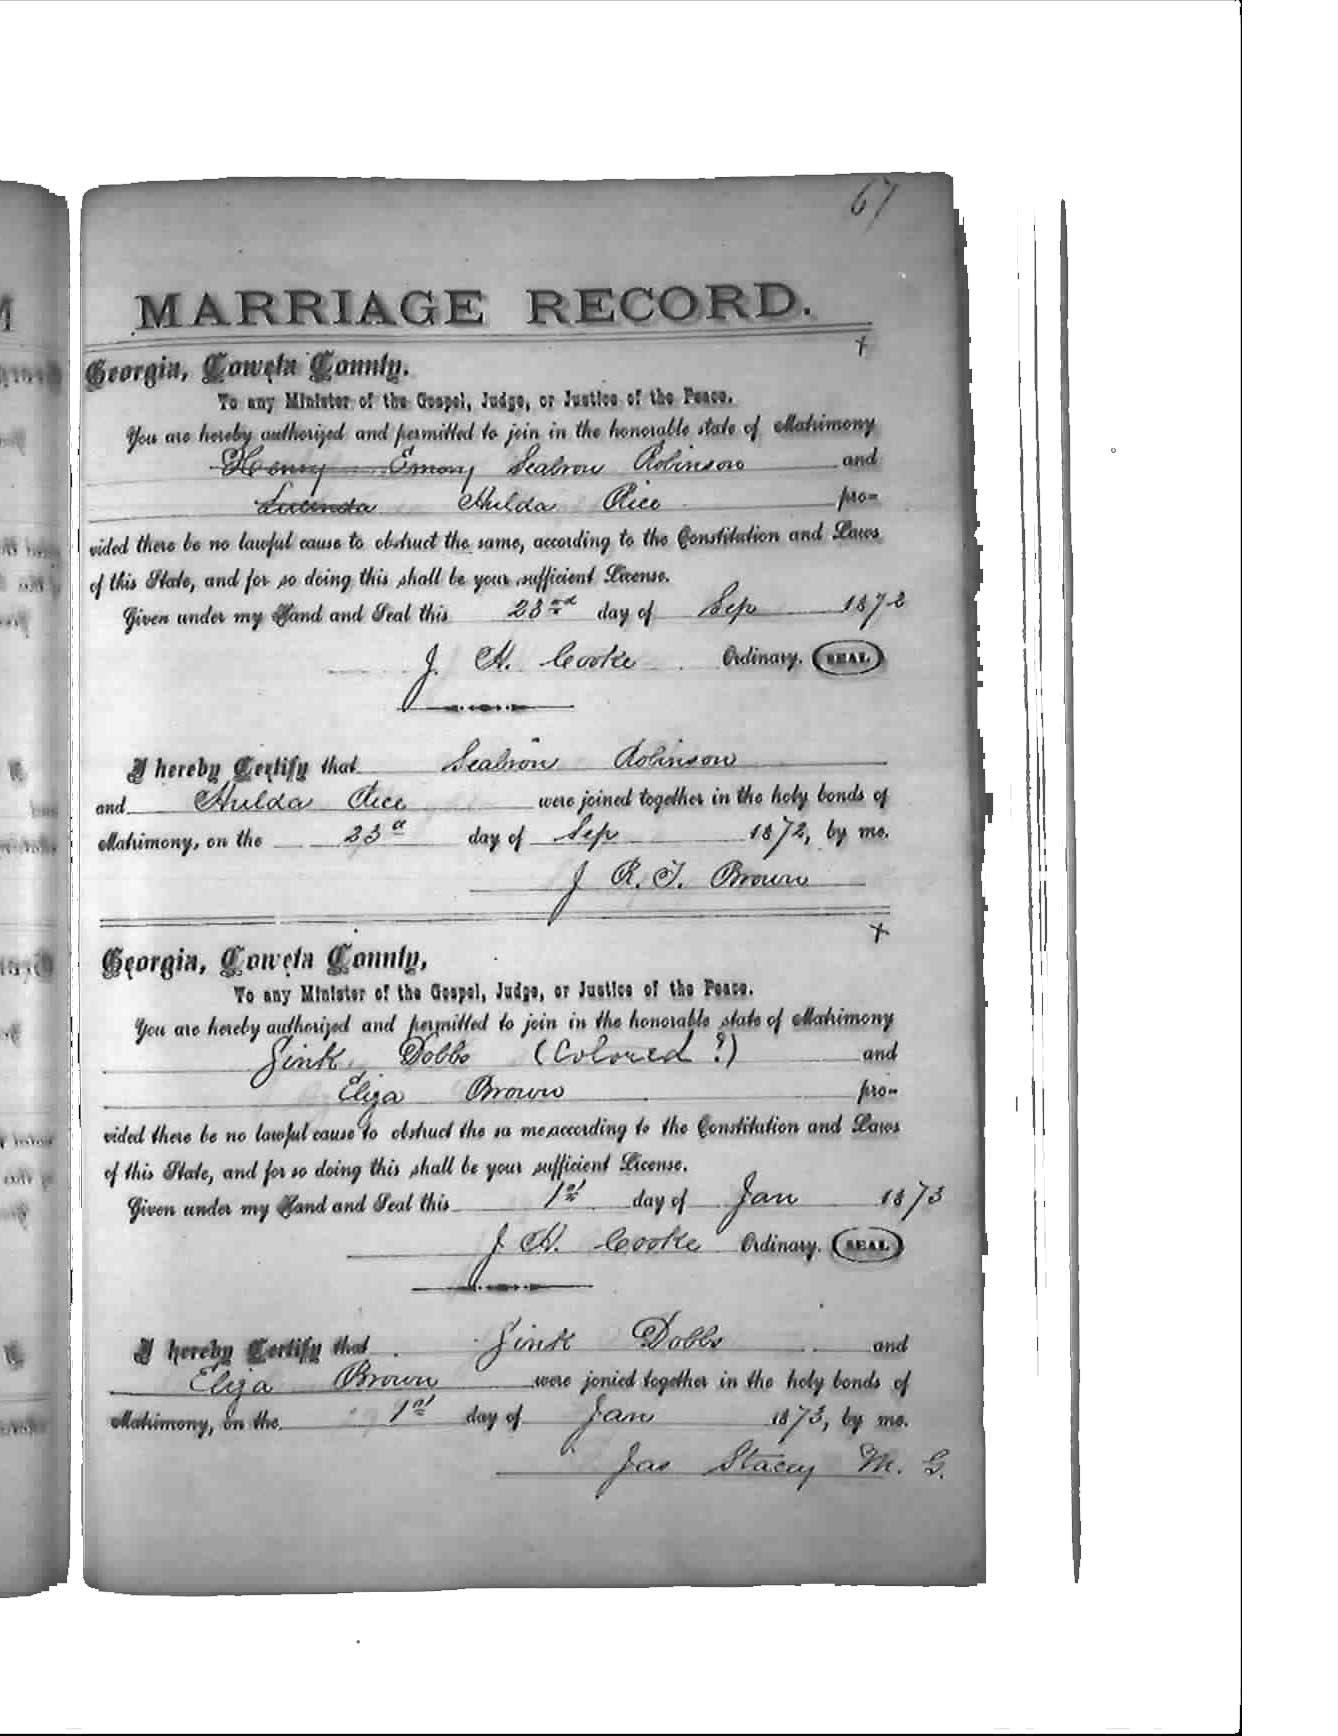 67
MARRIAGE RECORD.
+
Georgia, Coweta County.
To any Minister of the Gospel, Judge, or Justice of the Peace.
You are hereby authorized and permitted to join in the honorable state of Matrimony
Henry Emory Seabron Robinson and
Lucinda Hulda Rice pro-
vided there be no lawful cause to obstruct the same, according to the Constitution and Laws
of this State, and for so doing this shall be your sufficient License.
Given under my Hand and Seal this 23rd day of Sep 1872
J. H. Cooke Ordinary. SEAL
I hereby Certify that Seabron Robinson
and Hulda Rice were joined together in the holy bonds of
Matrimony, on the 23d day of Sep 1872, by me.
J R. T. Brown
+
Georgia, Coweta County,
To any Minister of the Gospel, Judge, or Justice of the Peace.
You are hereby authorized and permitted to join in the honorable state of Matrimony
Jink Dobbs (Colored ?) and
Eliza Brown pro-
vided there be no lawful cause to obstruct the sa me,according to the Constitution and Laws
of this State, and for so doing this shall be your sufficient License.
Given under my Hand and Seal this 1st day of Jan 1873
J. H. Cooke Ordinary. SEAL
I hereby Certify that Jink Dobbs and
Eliza Brown were jonied together in the holy bonds of
Matrimony, on the 1st day of Jan 1873, by me.
Jas Stacey M. G.